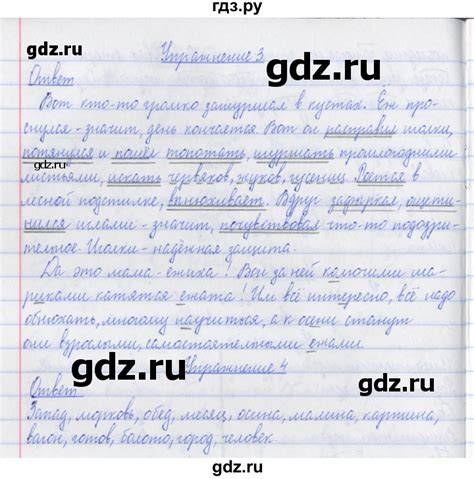 гдз.ру
Упражнение 3
gdz.ru gdz.ru
Ответ
Вот кто-то громко зашуршал в кустах. Ёж про-
снулся - значит, день кончается. Вот он расправил иголки,
потянулся и пошёл топотать, шуршать прошлогодними
gdz.ru
листьями, искать червяков, жуков, гусениц. Роется в
лесной подстилке, вынюхивает. Вдруг зафыркал, ощети-
нился иглами - значит, почувствовал что-то подозри-
тельное. Иголки - надёжная защита.
Да это мама-ежиха! Вон за ней колючими ша-
риками катятся ежата! Им всё интересно, всё надо
обнюхать, многому научиться, а к осени станут
они взрослыми, самостоятельными ежами.
gdz.ru gdz.ru
Упражнение 4
Ответ
Запад, морковь, обед, месяц, осина, малина, картина,
вагон, готов, болото, город, человек.
gdz.ru gdz.ru